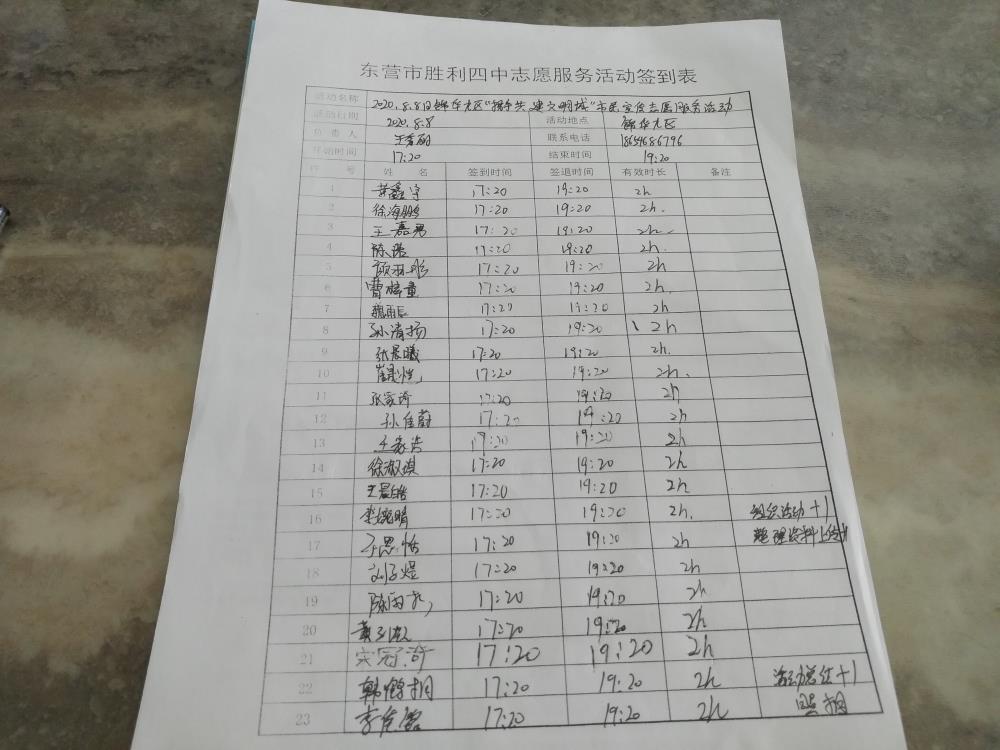 东营市胜利四中志愿服务活动签到表
活动名称 2020.8.8日锦华社区"携手共建文明城"市民宣传志愿服务活动
活动日期 2020.8.8 活动地点 锦华社区
负责人 联系电话 18654686796
开始时间 17:20 结束时间 19:20
序号 姓名 签到时间 签退时间 有效时长 备注
1 黄鑫宇 17:20 19:20 2h
2 徐海鹏 17:20 19:20 2h.
3 王嘉男 17:20 19:20 2h
4 17:20 19:20 2h.
5 17:20 19:20 2h
6 17:20 19:20 2h.
7 魏雨辰 17:20 19:20 2h
8 孙清扬 17:20 19:20 2h
9 张晨曦 17:20 19:20 2h.
10 17:20 19:20 2h.
11 张家齐 17:20 19:20 2h
12 孙佳蔚 17:20 19:20 2h
13 王家浩 17:20 19:20 2h
14 徐淑琪 17:20 19:20 2h
15 王晨皓 17:20 19:20 2h
16 李婉晴 17:20 19:20 2h. 组织活动+1
17 王思恬 17:20 19:20 2h 整理资料上传+1
18 刘子煜 17:20 19:20 2h
19 17:20 19:20 2h
20 17:20 19:20 2h
21 宋冠奇 17:20 19:20 2h
22 韩鹤桐 17:20 19:20 2h 活动总结+1
23 17:20 19:20 2h 照相